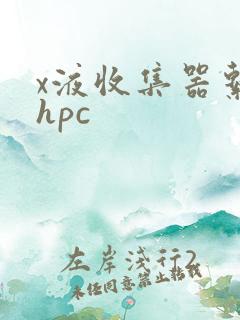 x液收集器
hpc
左岸浅行2
未经同意禁止转载